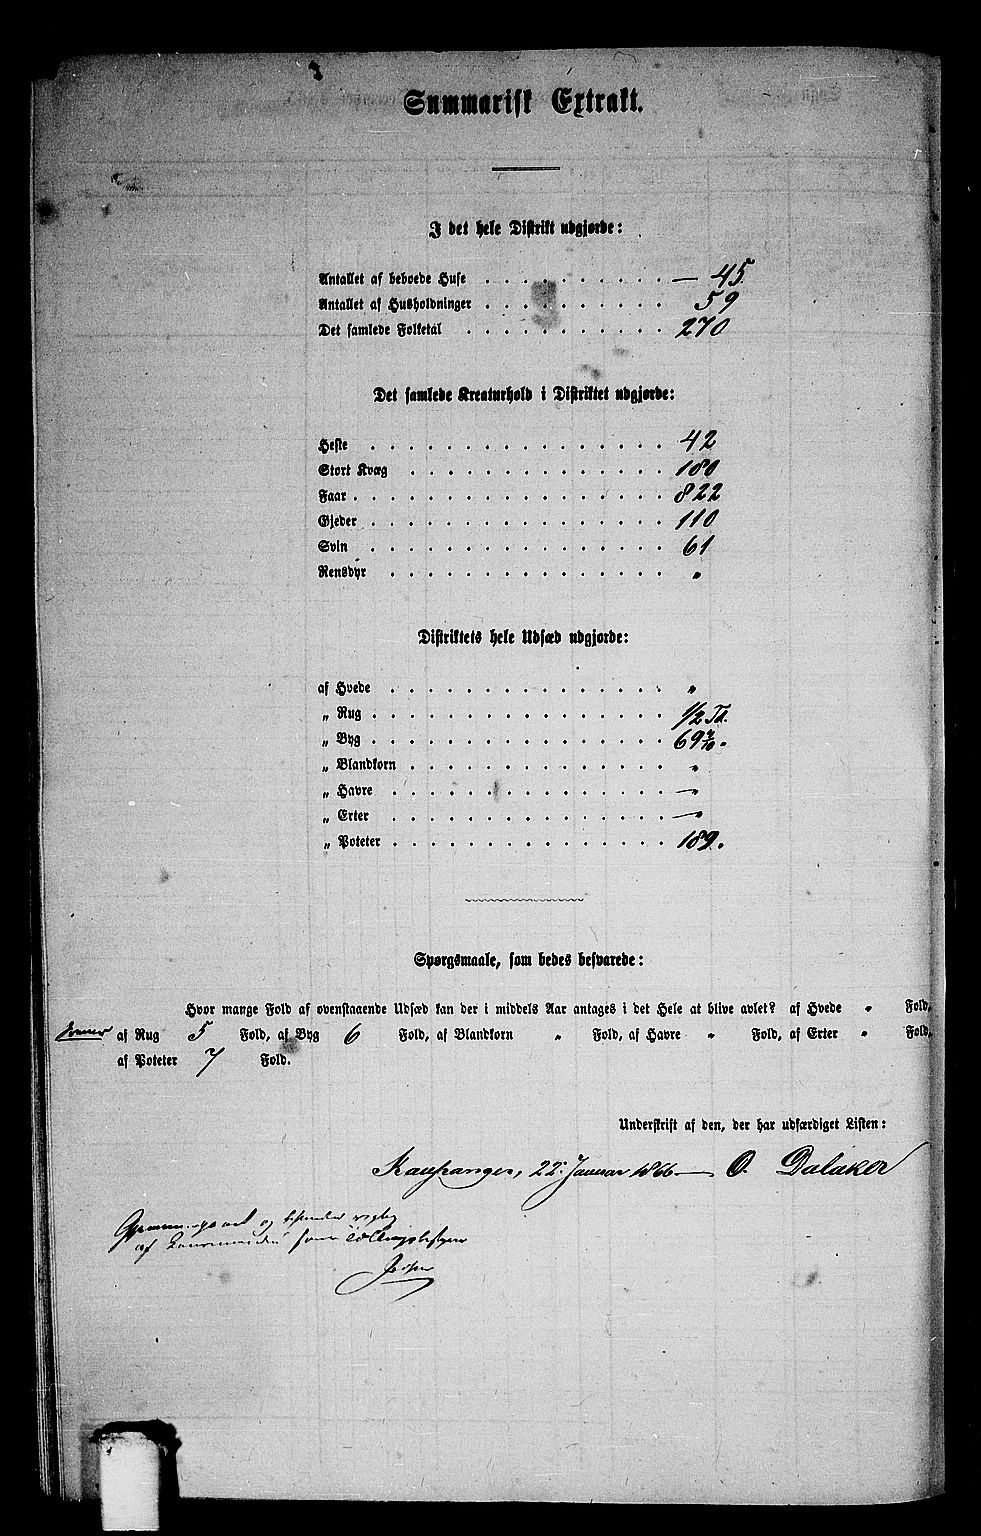 Summarisk Extrakt.
I det hele Distrikt udgjorde:
Antallet af beboede Huse . . . . . . . . . . — 45.
Antallet af Husholdninger . . . . . . . . . . 59
Det samlede Folketal . . . . . . . . . . . 270
Det samlede Kreaturhold i Distriktet udgjorde:
Heste . . . . . . . . . . . . . . . . 42
Stort Kvæg . . . . . . . . . . . . . . 180
Faar . . . . . . . . . . . . . . . . . 822
Gjeder . . . . . . . . . . . . . . . . 110
Svin . . . . . . . . . . . . . . . . 61
Rensdyr . . . . . . . . . . . . . . . "
Distriktets hele Udsæd udgjorde:
af Hvede . . . . . . . . . . . . . . . "
„ Rug . . . . . . . . . . . . . . . . 1/2 Td.
„ Byg . . . . . . . . . . . . . . . . 69 4/10 "
„ Blandkorn . . . . . . . . . . . . . . "
„ Havre . . . . . . . . . . . . . . . — "
„ Erter . . . . . . . . . . . . . . . — "
„ Poteter . . . . . . . . . . . . . . . 189 "
Spørgsmaale, som bedes besvarede:
Hvor mange Fold af ovenstaaende Udsæd kan der i middels Aar antages i det Hele at blive avlet? af Hvede " Fold,
af Rug 5 Fold, af Byg 6 Fold, af Blandkorn " Fold, af Havre " Fold, af Erter " Fold,
af Poteter 7 Fold.
Underskrift af den, der har udfærdiget Listen:
Kaupanger, 22. Januar 1866 — O. Dalaker
og befundet rigtig
af som Tællingsbestyrer